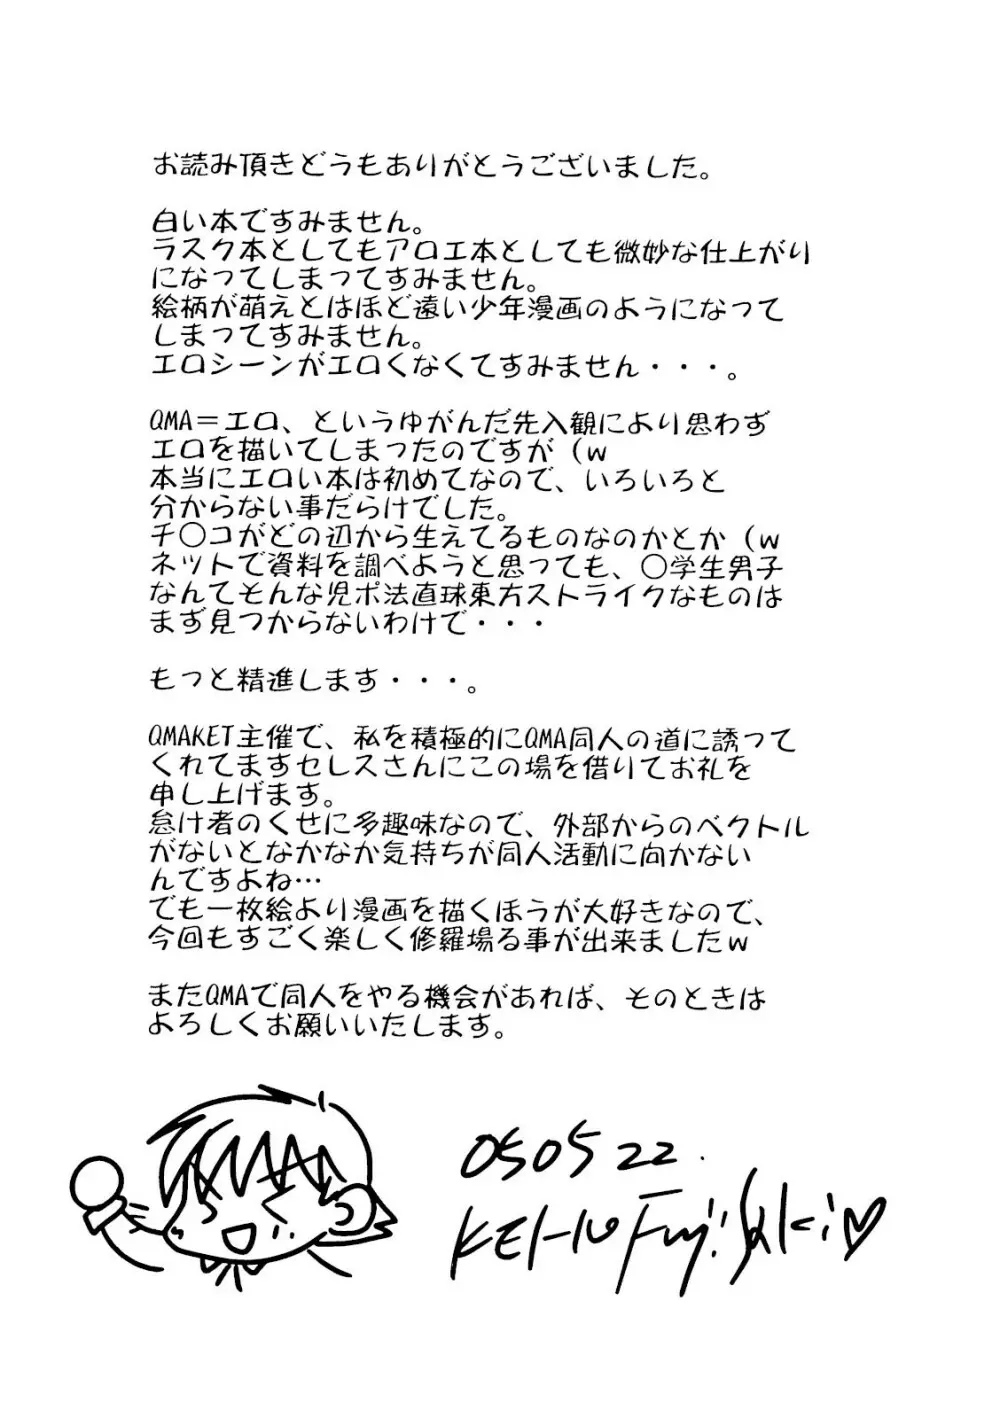 お読み頂きどうもありがとうございました。
白い本ですみません。
ラスク本としてもアロエ本としても微妙な仕上がり
になってしまってすみません。
絵柄が萌えとはほど遠い少年漫画のようになって
しまってすみません。
エロシーンがエロくなくてすみません・・・。
QMA＝エロ、というゆがんだ先入観により思わず
エロを描いてしまったのですが（w
本当にエロい本は初めてなので、いろいろと
分からない事だらけでした。
チ○コがどの辺から生えてるものなのかとか（w
ネットで資料を調べようと思っても、○学生男子
なんてそんな児ポ法直球東方ストライクなものは
まず見つからないわけで・・・
もっと精進します・・・。
QMAKET主催で、私を積極的にQMA同人の道に誘って
くれてますセレスさんにこの場を借りてお礼を
申し上げます。
怠け者のくせに多趣味なので、外部からのベクトル
がないとなかなか気持ちが同人活動に向かない
んですよね…
でも一枚絵より漫画を描くほうが大好きなので、
今回もすごく楽しく修羅場る事が出来ましたw
またQMAで同人をやる機会があれば、そのときは
よろしくお願いいたします。
050522.
Fujisaki♡